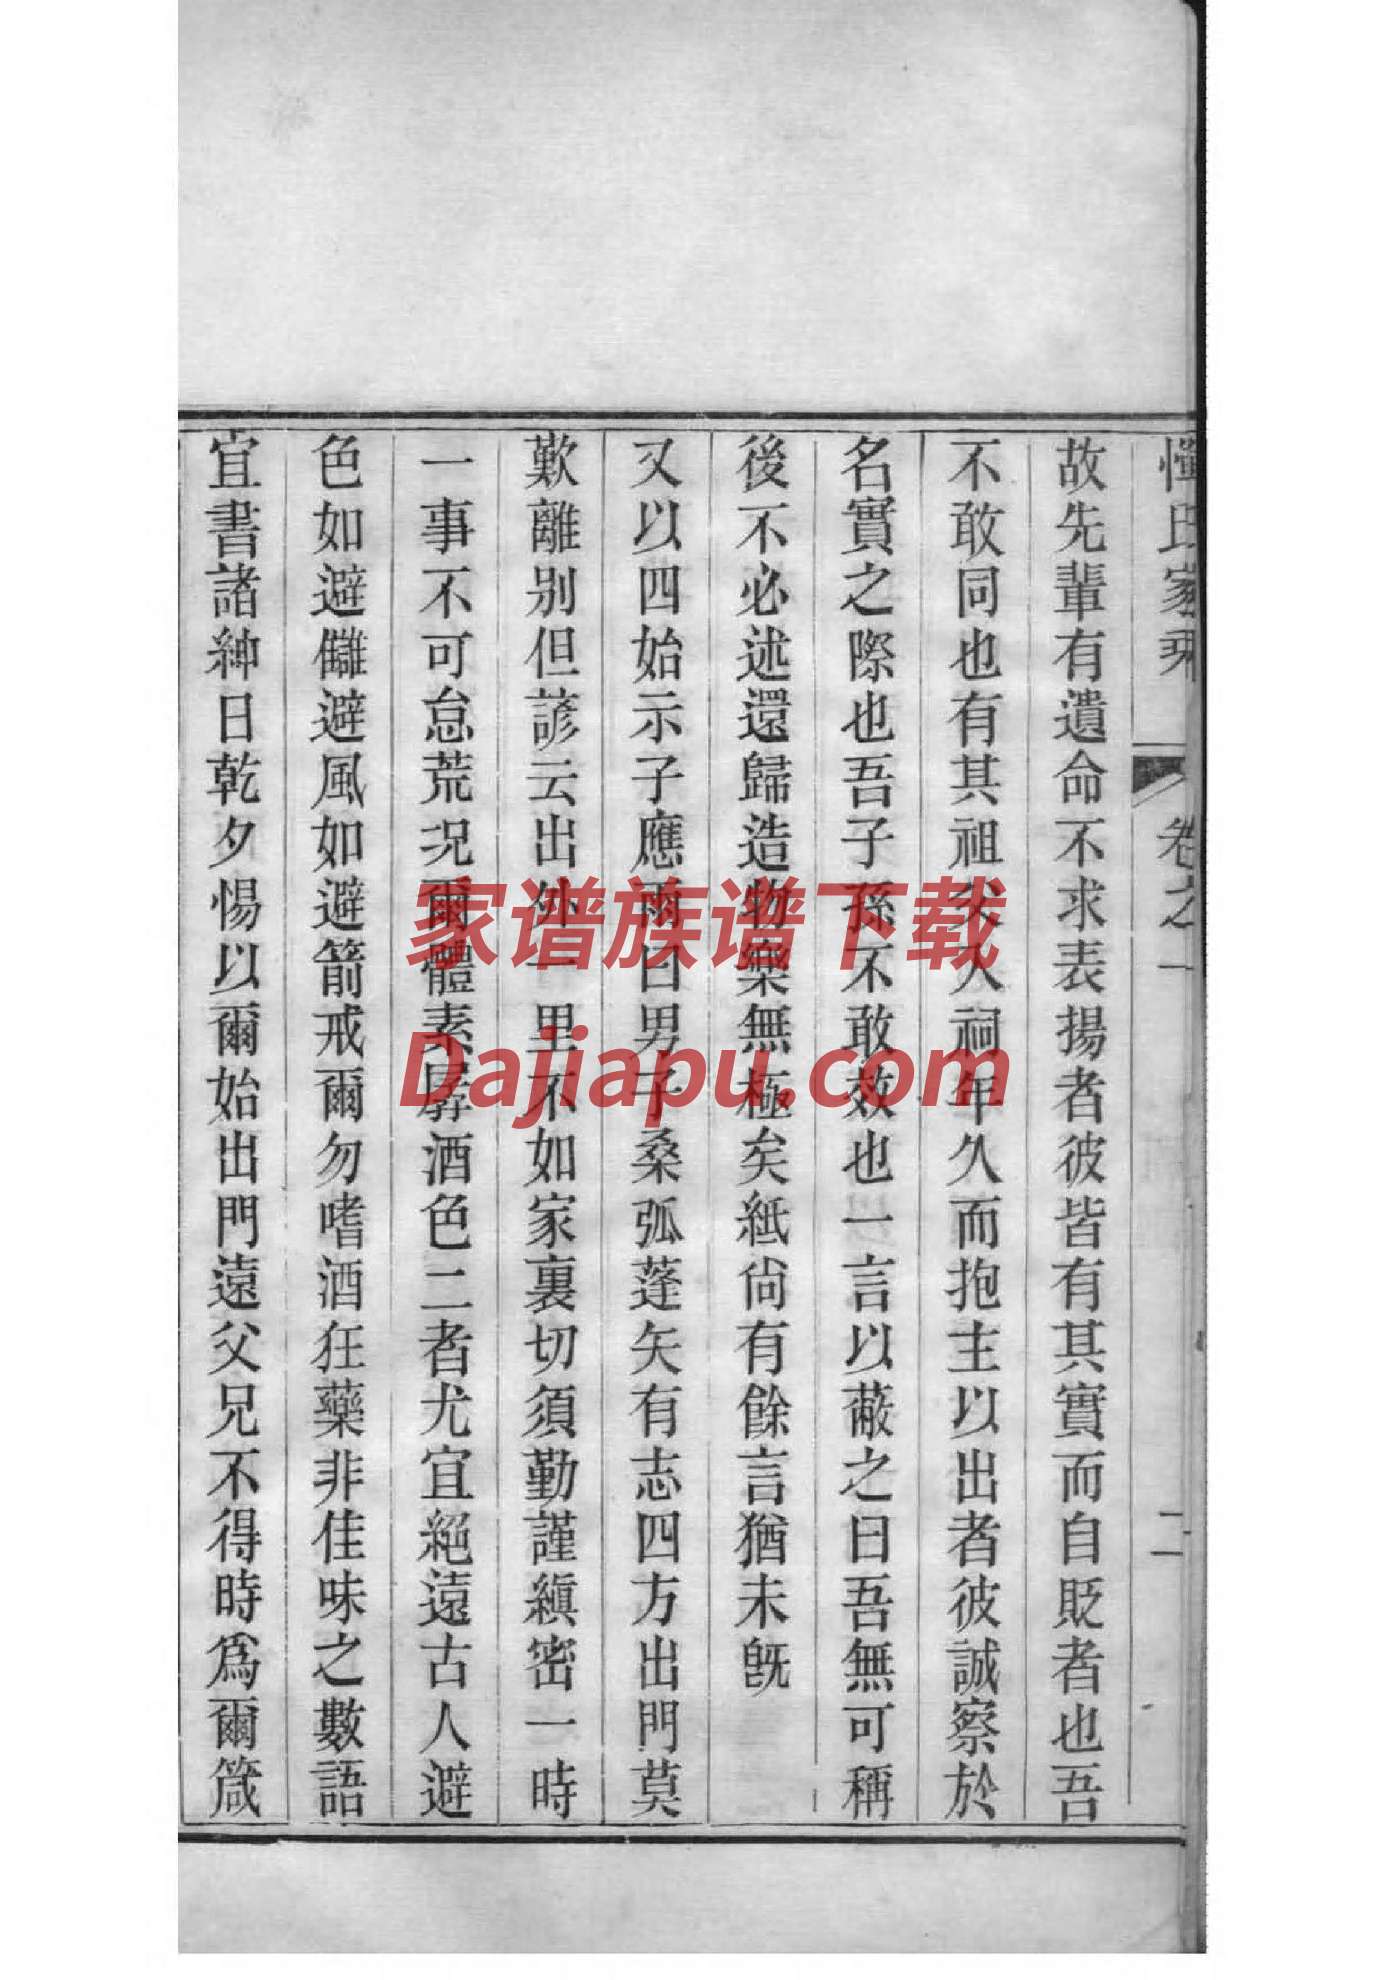 惲氏家乘 卷之一 二
故先輩有遺命不求表揚者彼皆有其實而自貶者也吾
不敢同也有其祖父入祠年久而抱主以出者彼誠察於
名實之際也吾子孫不敢效也一言以蔽之曰吾無可稱
後不必述還歸造物樂無極矣紙尙有餘言猶未旣
又以四始示子應雨曰男子桑弧蓬矢有志四方出門莫
歎離别但諺云出外一里不如家裏切須勤謹縝密一時
一事不可怠荒况爾體素孱酒色二者尤宜絕遠古人避
色如避讎避風如避箭戒爾勿嗜酒狂藥非佳味之數語
宜書諸紳日乾夕惕以爾始出門遠父兄不得時爲爾箴
家谱族谱下载
Dajiapu.com